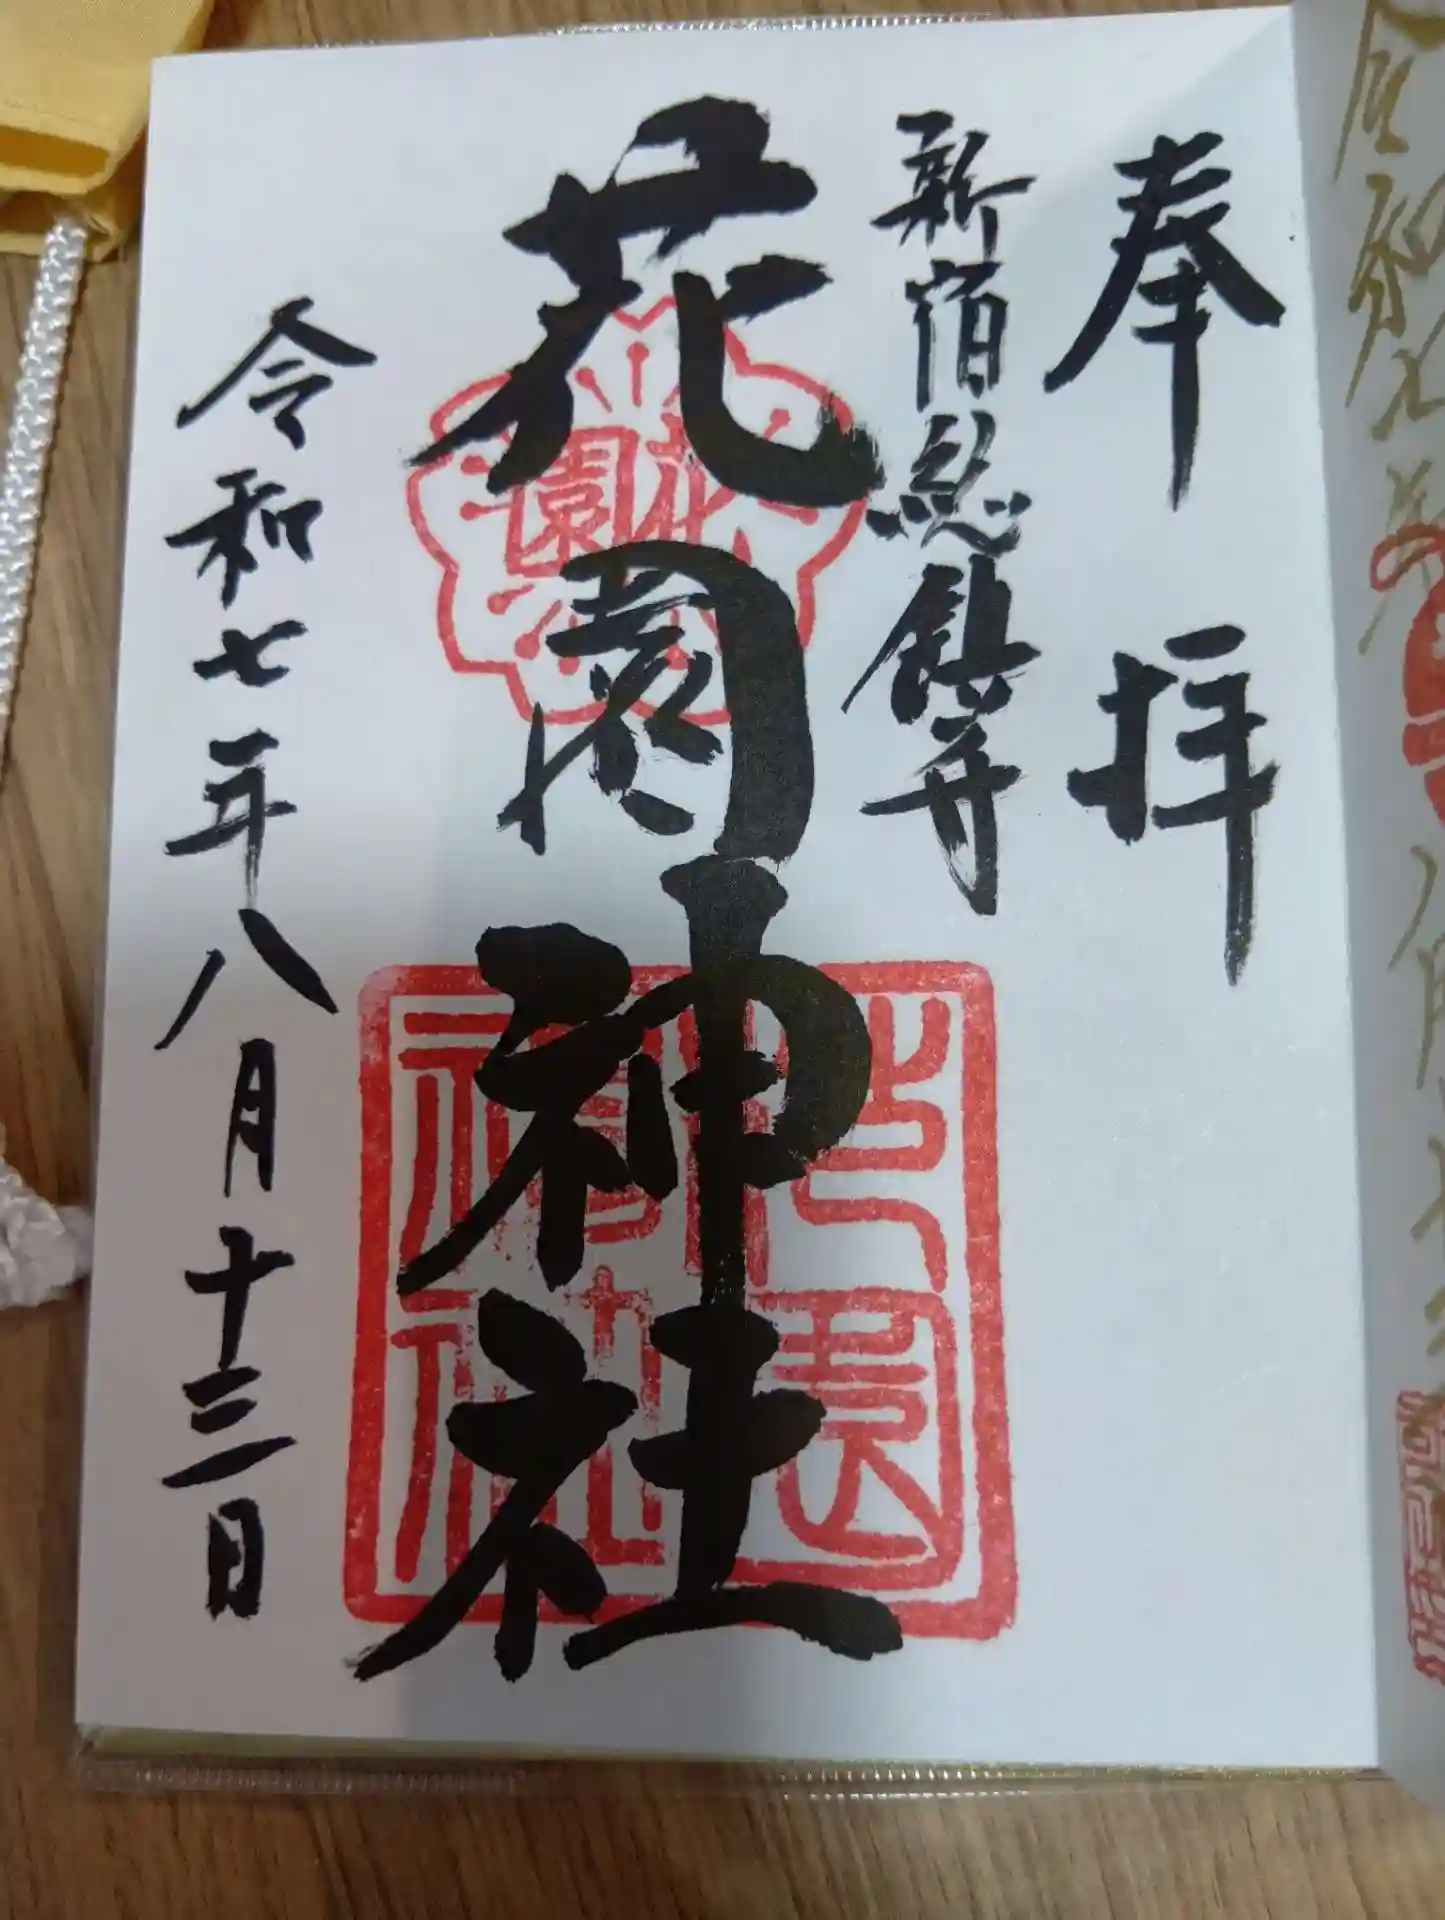 奉拝
新宿総鎮守
花園神社
花園
花園神社
令和七年八月十三日